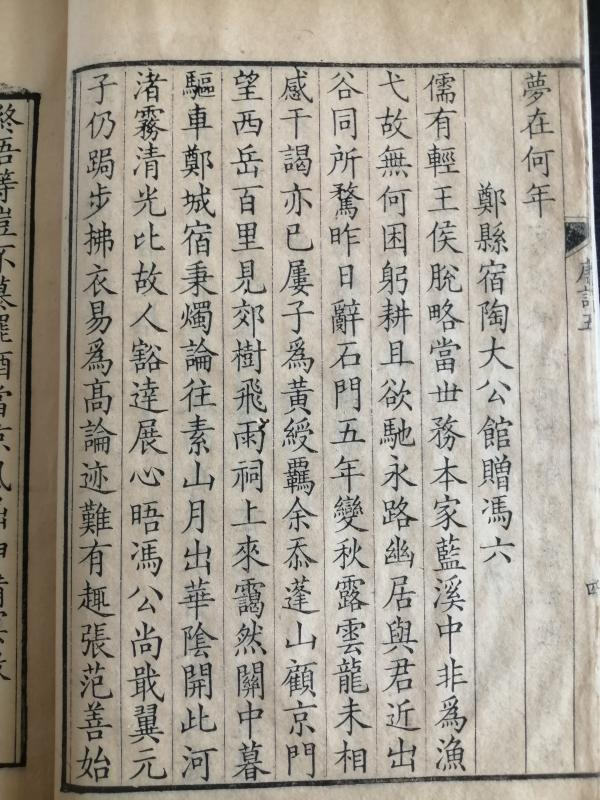 夢在何年
鄭縣宿陶大公館贈馮六
儒有輕王侯脫略當世務本家藍溪中非為漁
弋故無何困躬耕且欲馳永路幽居與君近出
谷同所騖昨日辭石門五年變秋露雲龍未相
感干謁亦已屢子為黃綬羈余忝蓬山顧京門
望西岳百里見郊樹飛雨祠上來靄然關中暮
驅車鄭城宿秉燭論往素山月出華陰開此河
渚霧清光比故人豁達展心晤馮公尚戢翼元
子仍跼步拂衣易為高論迹難有趣張范善始
終吾等豈不慕罷酒當